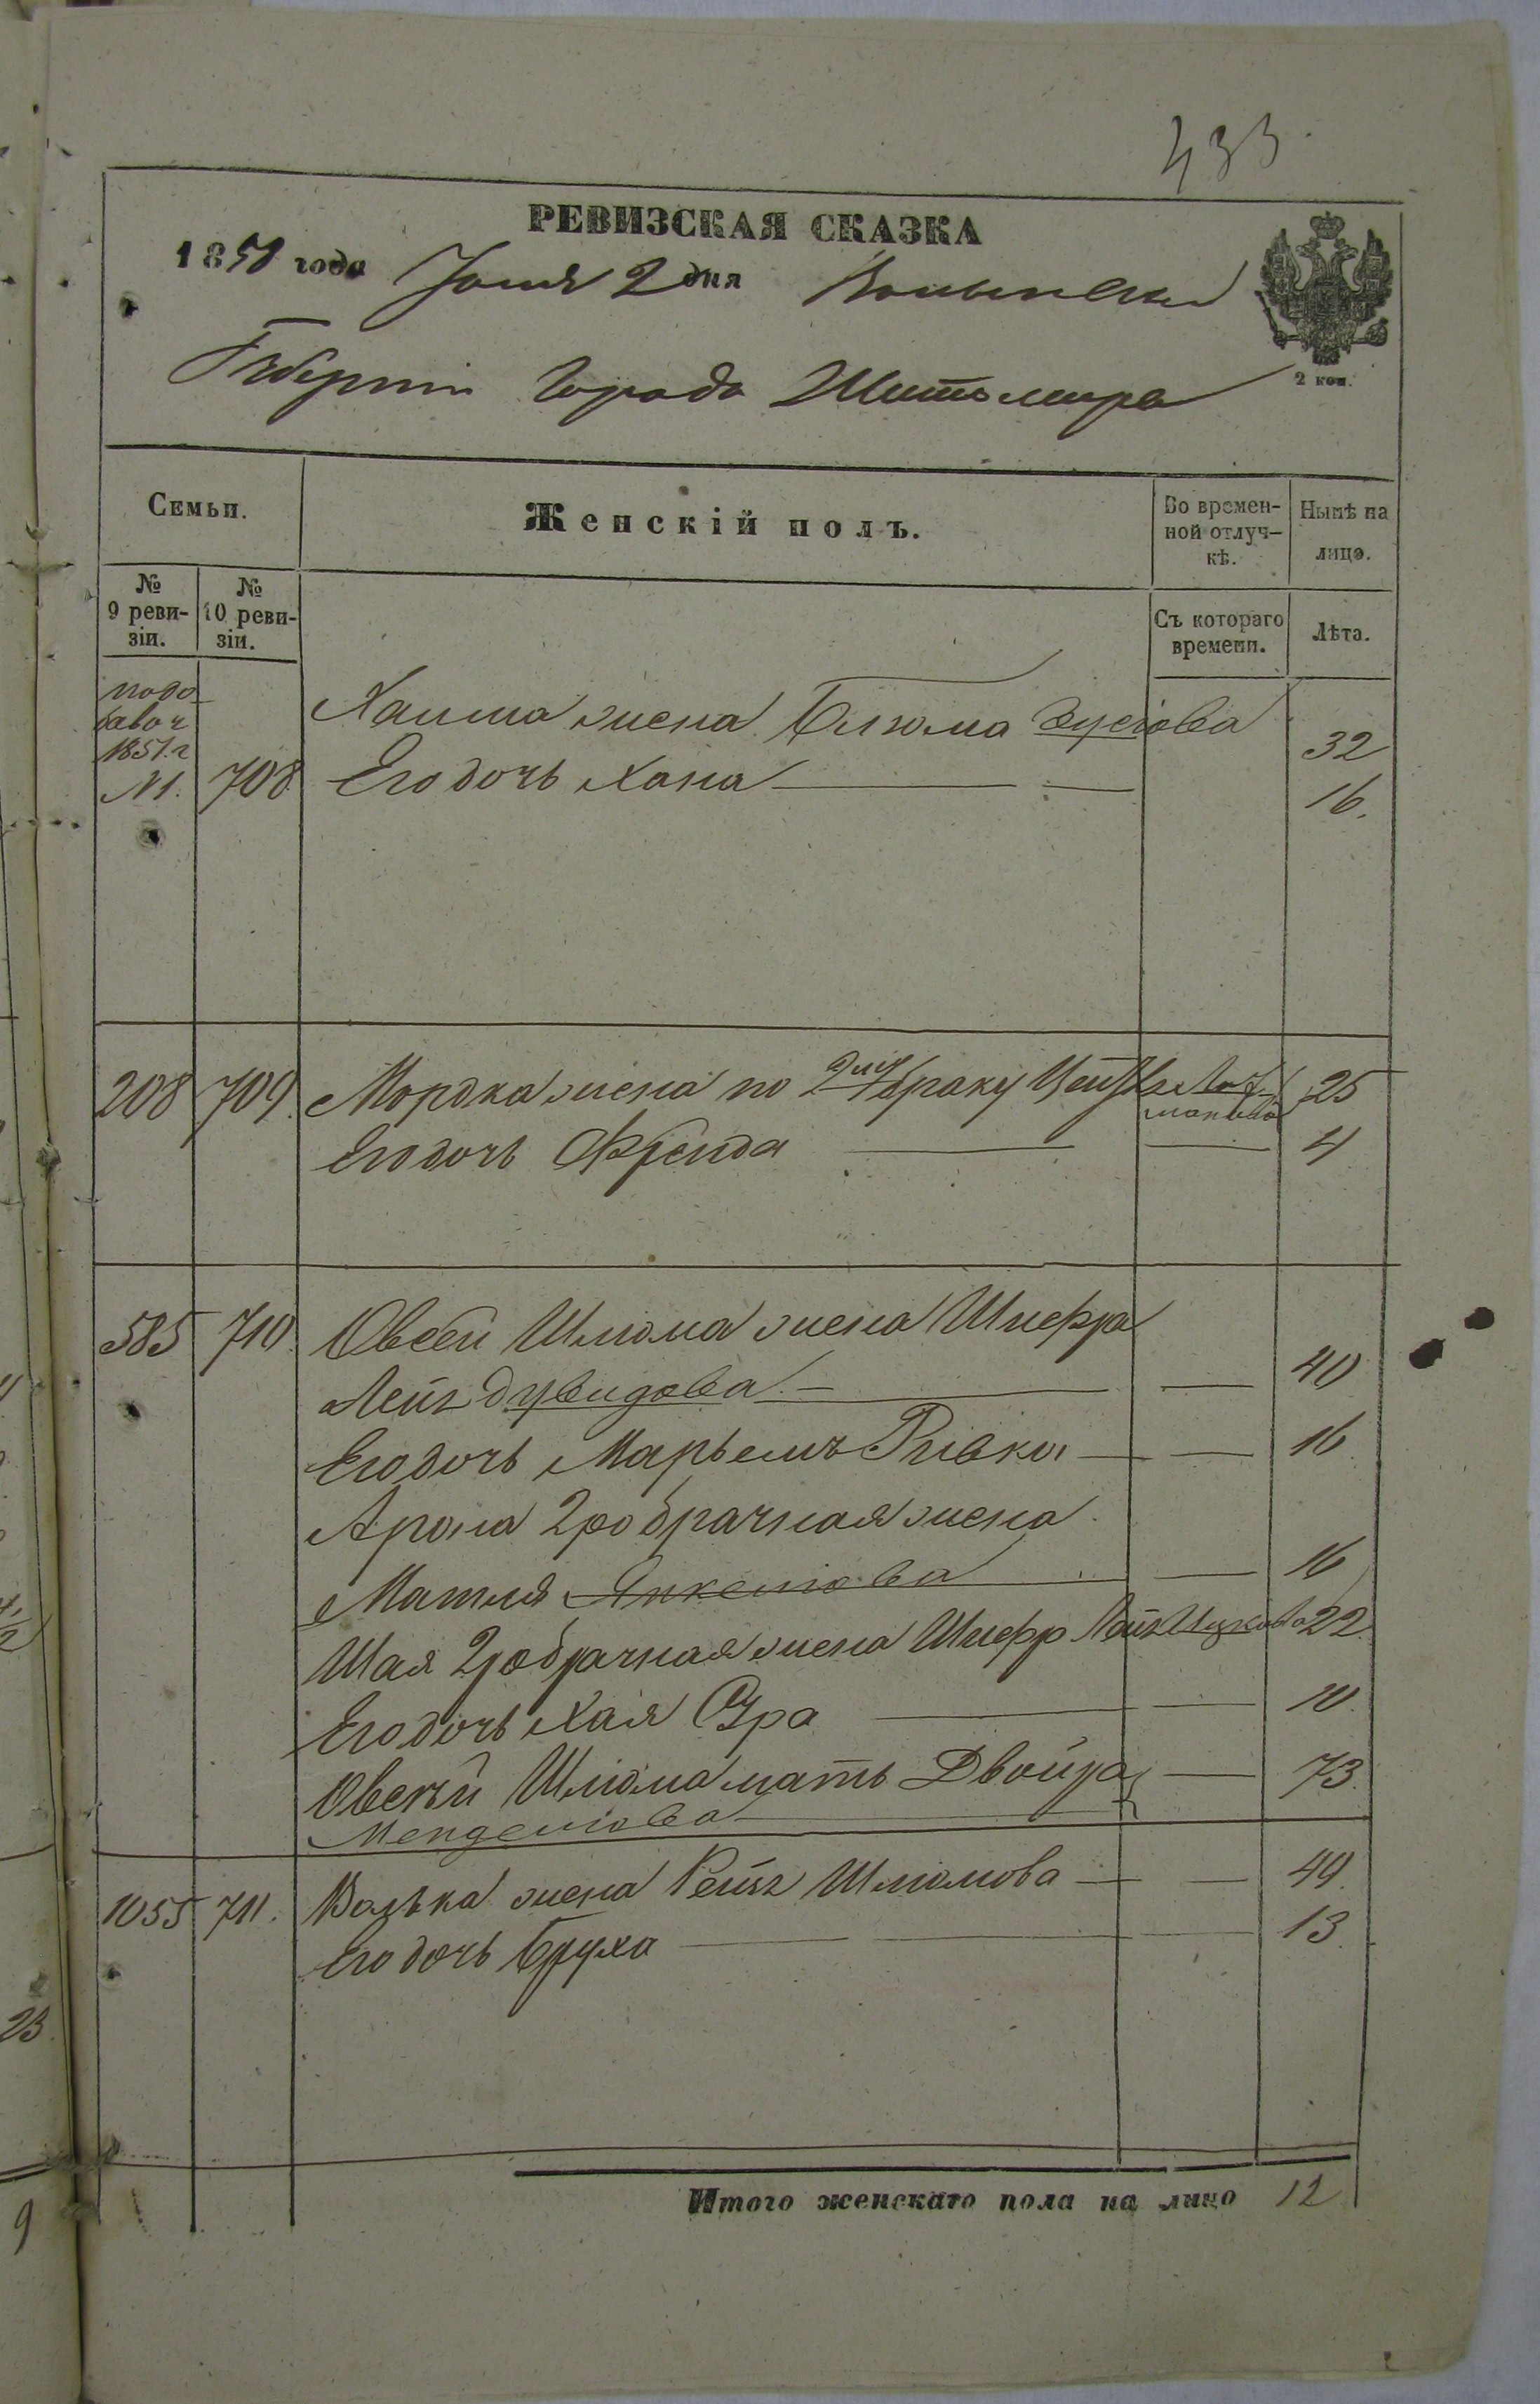 433.
РЕВИЗСКАЯ СКАЗКА
1858 года Июня 2 дня Волынской
2 коп.
Губерніи Города Житомира
Семьи.
Женскій полъ.
Во времен-
ной отлуч-
кѣ.
Нынѣ на
лицо.
№
9 реви-
зіи.
№
10 реви-
зіи.
Съ котораго
времени.
Лѣта.
подо
бавоч
1851 г
№1. 708
Хаима жена Блюма Зусіова 32
Его дочь Хана 16.
208 709. Мордка жена по 2му браку 25
Его дочь Фрейда 4
585 710. Овсей Шлома жена Шифра
Лейя Дувидова 40
Его дочь Марьемъ Ривка 16
Арона 2робрачная жена
Матля Янкелiова 16
Шая 2робрачная жена Шифр Ицкова 22.
Его дочь Хая Сура 10.
Овсѣй Шлiома мать Двойра 73.
Менделiова
1055 711. Волька жена Рейзя Шлiомова 49.
Его дочь Бруха 13.
Итого женскаго пола на лицо 12